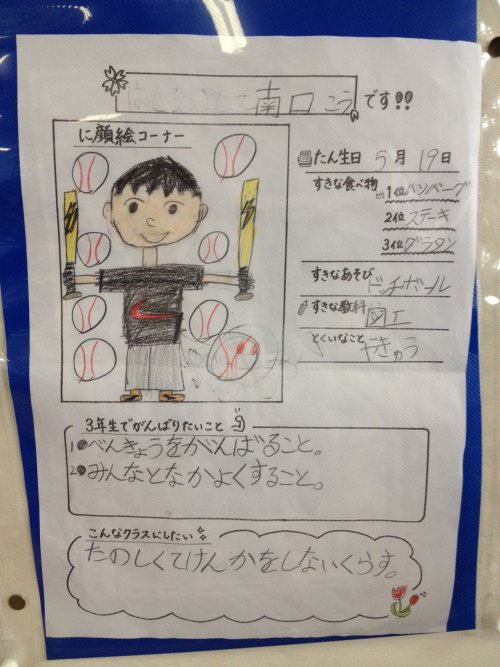 はじめまして南口こうです!!
に顔絵コーナー
たん生日 5月19日
すきな食べ物 1位ハンバーグ
2位ステーキ
3位グラタン
すきなあそび ドッチボール
すきな教科 図工
とくいなこと やきゅう
3年生でがんばりたいこと
1●べんきょうをがんばること。
2●みんなとなかよくすること。
こんなクラスにしたい
たのしくてけんかをしないくらす。